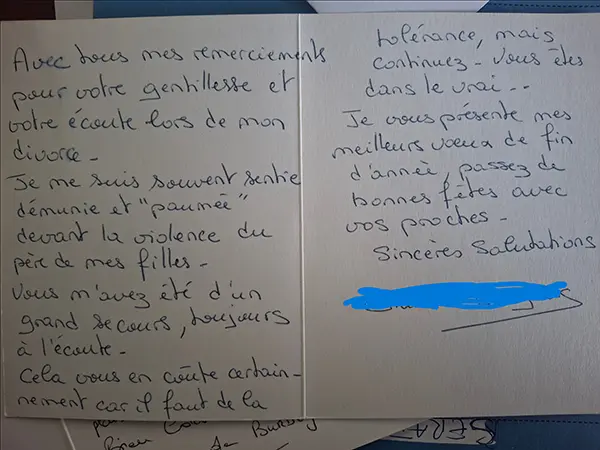 Avec tous mes remerciements
pour votre gentillesse et
votre écoute lors de mon
divorce -
Je me suis souvent sentie
démunie et "paumée"
devant la violence du
père de mes filles -
Vous m'avez été d'un
grand secours, toujours
à l'écoute -
Cela vous en coûte certain-
nement car il faut de la
tolérance, mais
continuez - Vous êtes
dans le vrai - -
Je vous présente mes
meilleurs vœux de fin
d'année, passez de
bonnes fêtes avec
vos proches -
Sincères Salutations